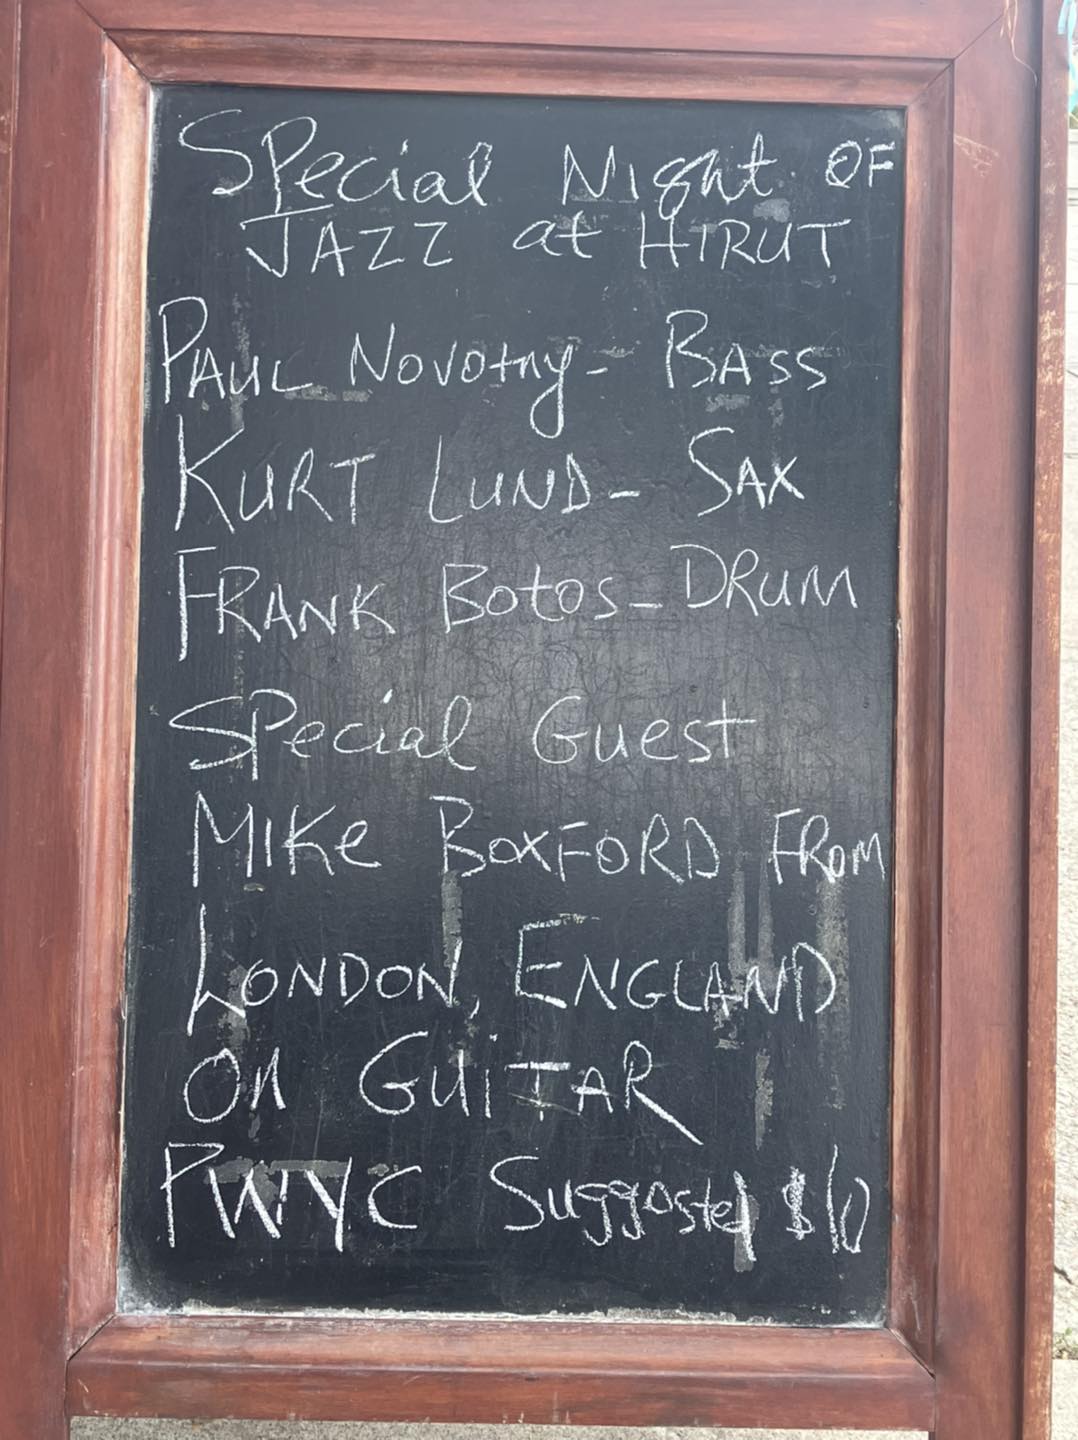 Special Night OF
JAZZ at HIRUT
PAUL Novotny - BASS
KURT LUND - SAX
FRANK Botos - DRUM
Special Guest
MIKe BOXFORD FROM
LONDON, ENGLAND
On GUiTAR
PWYC Suggosted $10